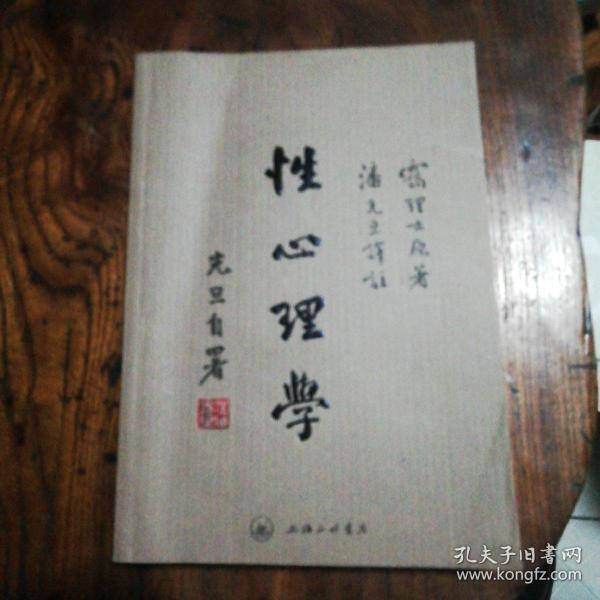 靄理士原著
潘光旦譯註
性心理學
光旦自署
上海三联书店
孔夫子旧书网
www.kongfz.com